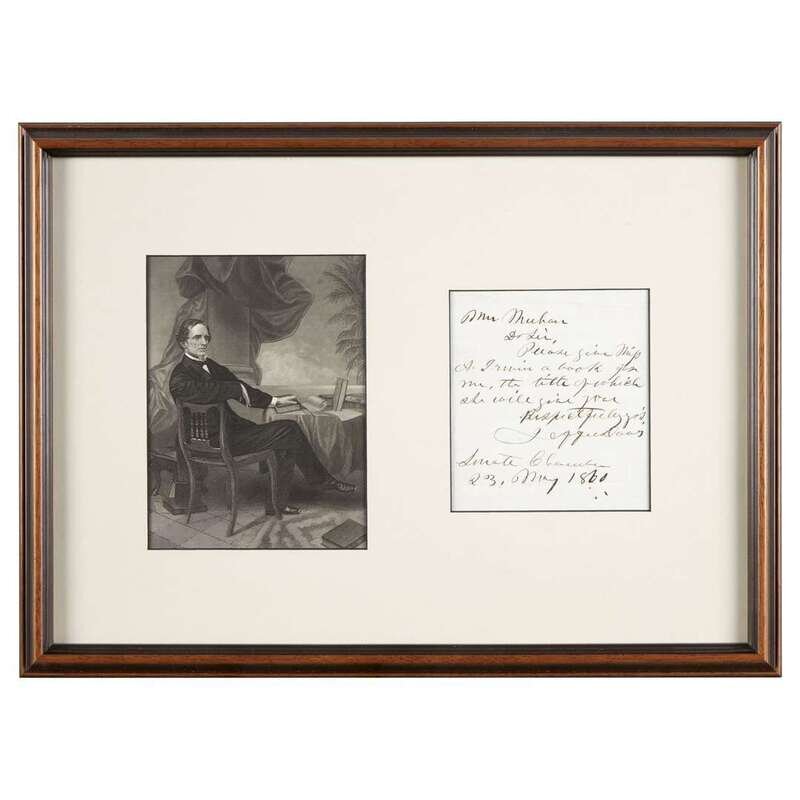 Mr Meehan
Dr Sir,
Please give Miss
A. Irwin a book for
me, the title of which
she will give you
Respectfully yrs.
Jeffn Davis
Senate Chamber
23, May 1860